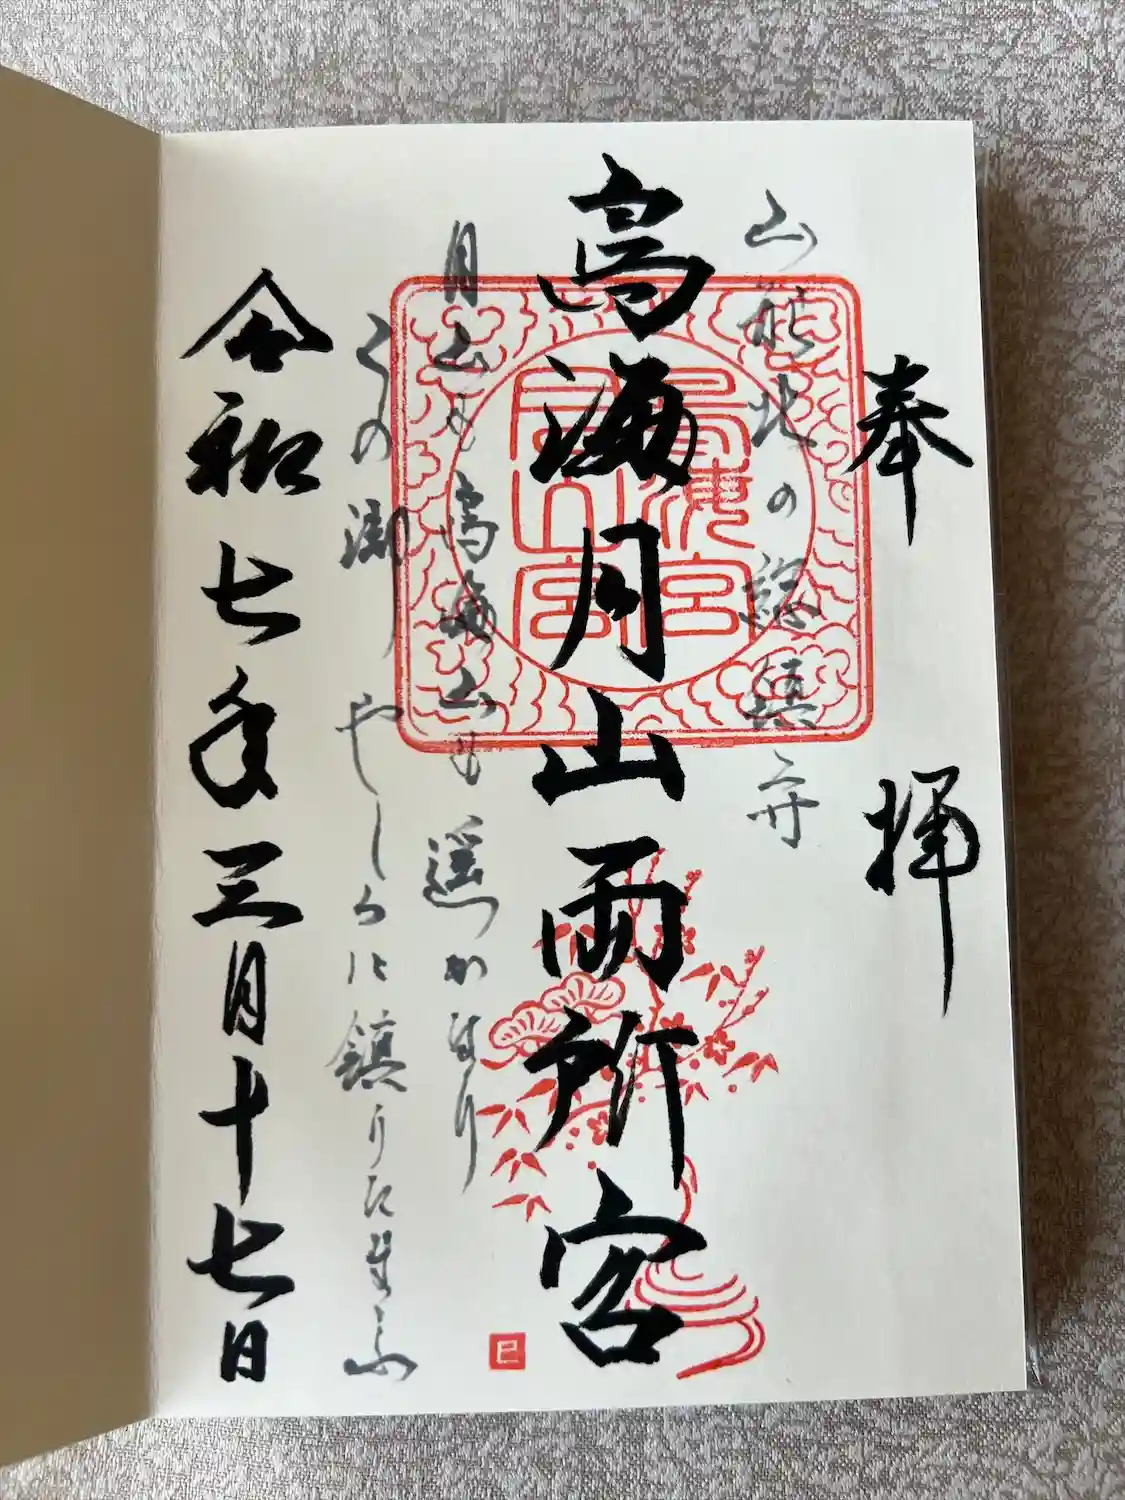 奉拝
山形北の総鎮守
鳥海月山両所宮
鳥海宮
月山宮
月山も鳥海山も遥かなり
やしろに鎮りたまふ
令和七年三月十七日
巳